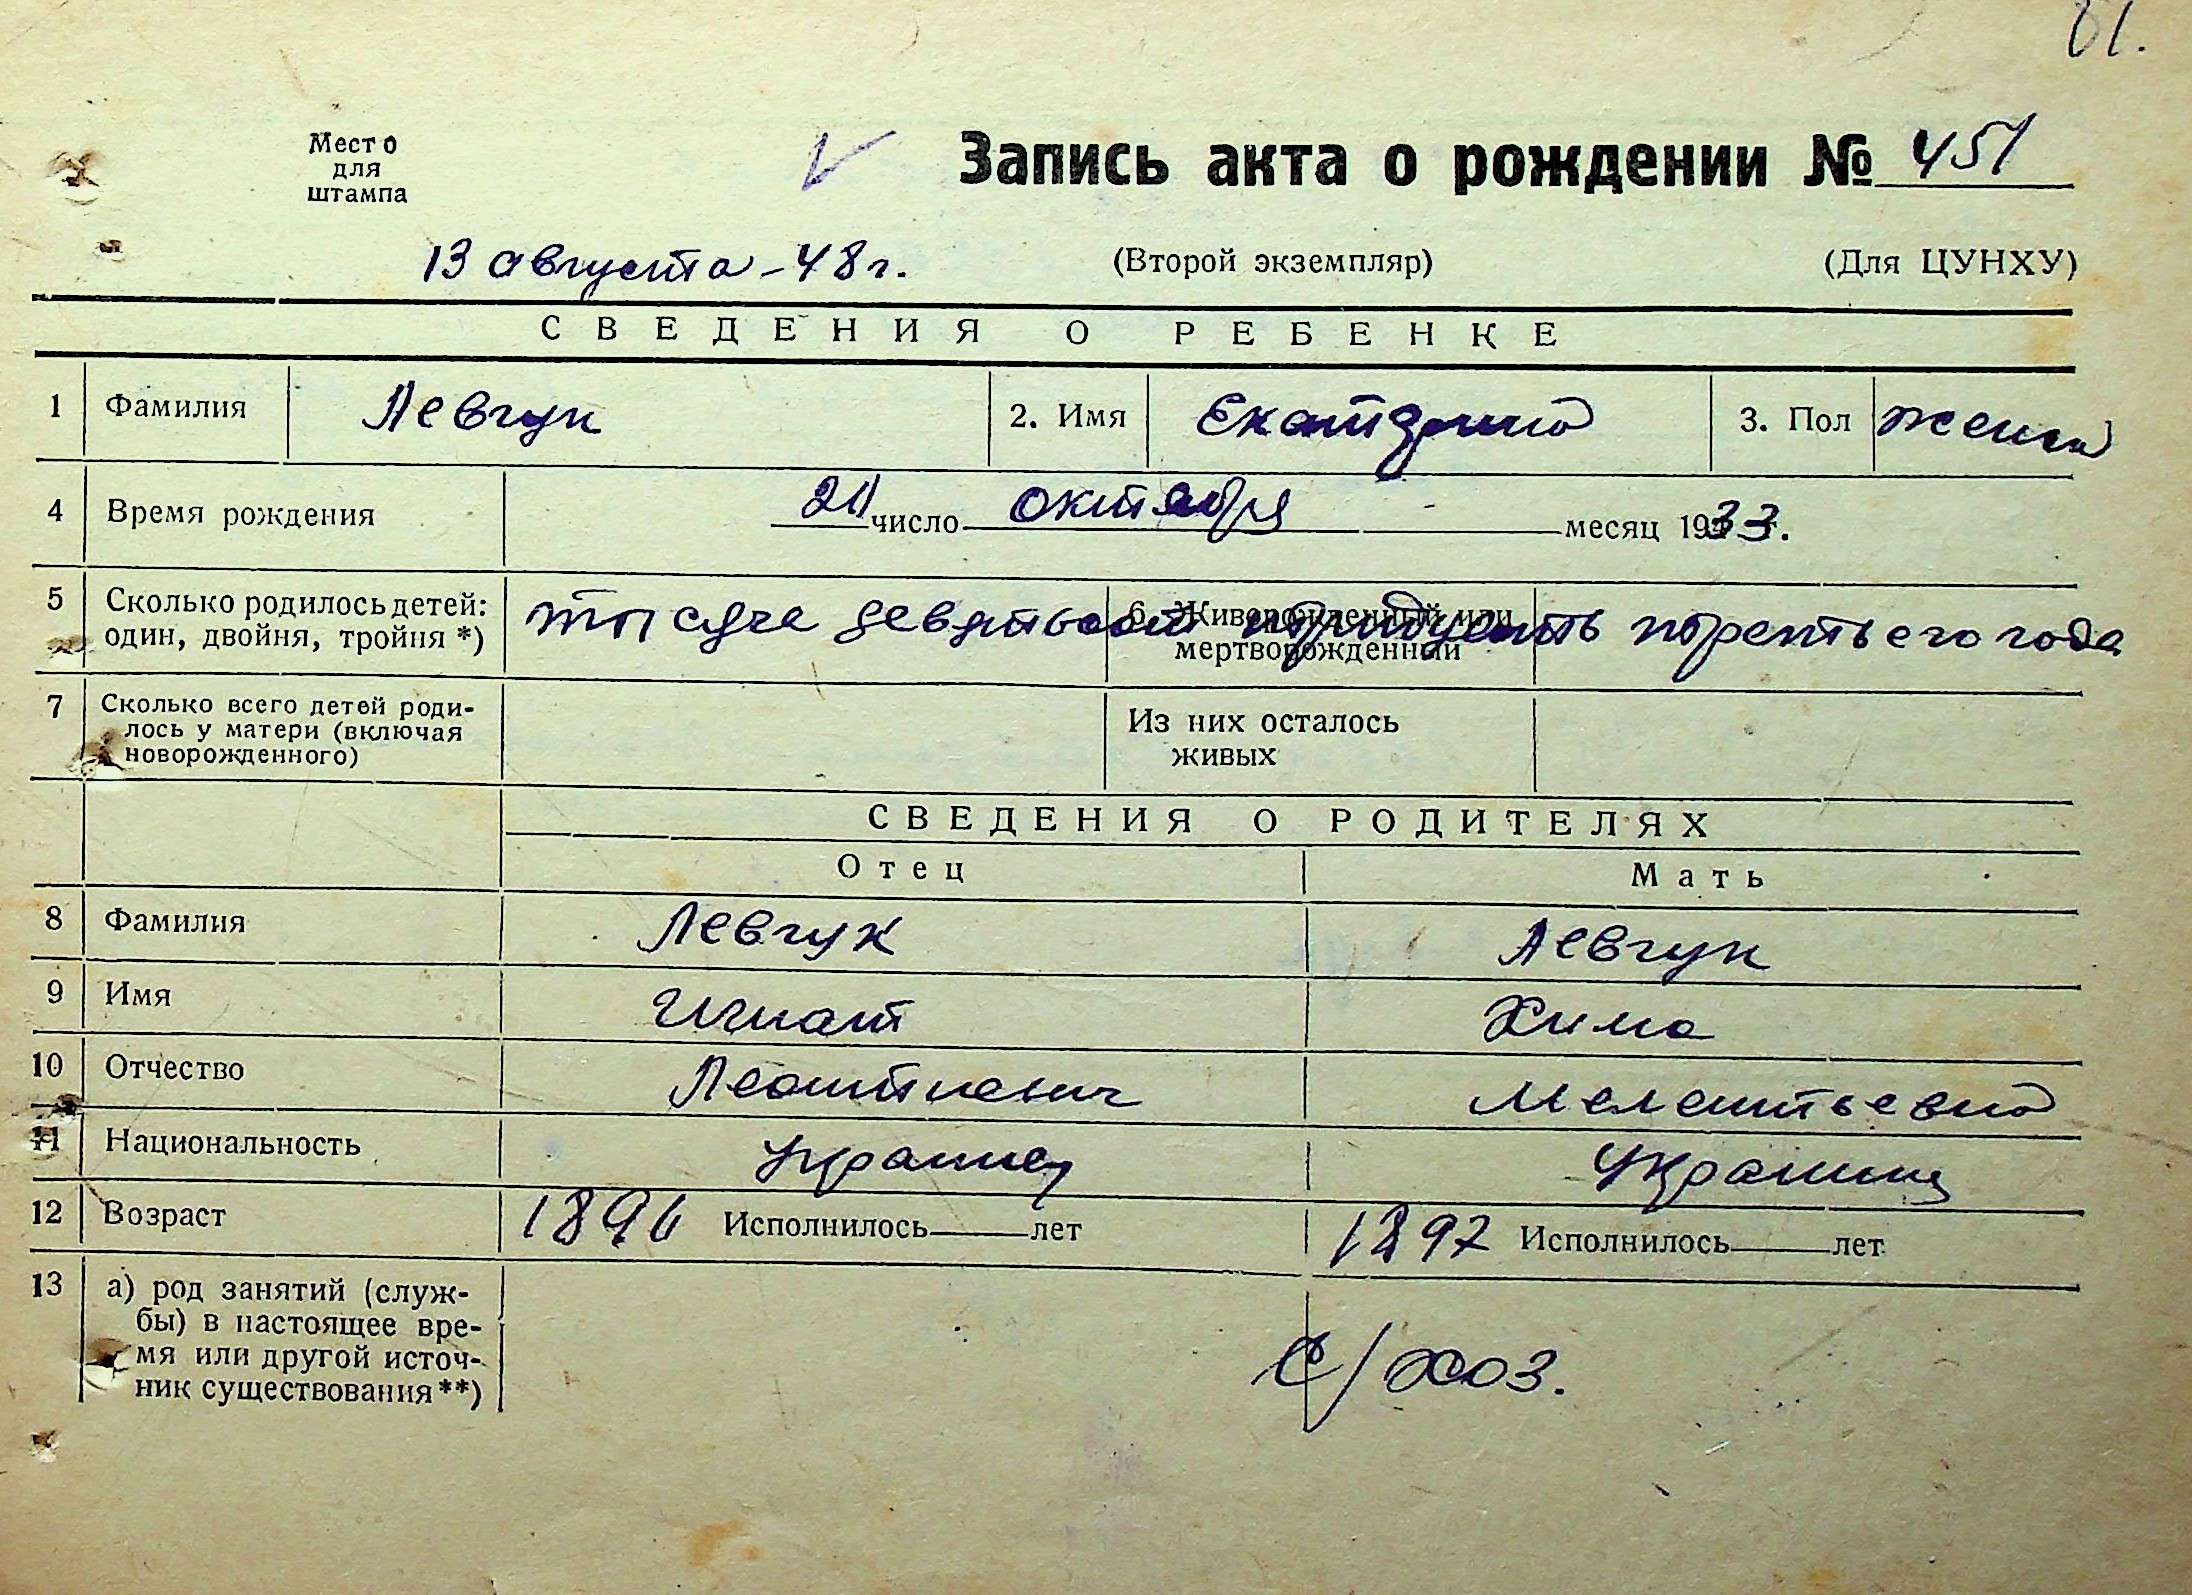 81.
Место
для
штампа
Запись акта о рождении № 451
13 августа - 48 г.
(Второй экземпляр)
(Для ЦУНХУ)
СВЕДЕНИЯ О РЕБЕНКЕ
1 Фамилия Левчук 2. Имя Екатерина 3. Пол женск
4 Время рождения число октября месяц 1933 г.
5 Сколько родилось детей:
один, двойня, тройня *)
6. Живорожденный или
мертворожденный
тысяча девятьсот тридцать третьего года
7 Сколько всего детей роди-
лось у матери (включая
новорожденного)
Из них осталось
живых
СВЕДЕНИЯ О РОДИТЕЛЯХ
Отец Мать
8 Фамилия Левчук Левчук
9 Имя Игнат Хима
10 Отчество Леонтиевич Мелентьевна
11 Национальность Украинец Украинц
12 Возраст 1896 Исполнилось лет 1897 Исполнилось лет
13 а) род занятий (служ-
бы) в настоящее вре-
мя или другой источ-
ник существования**)
с/хоз.